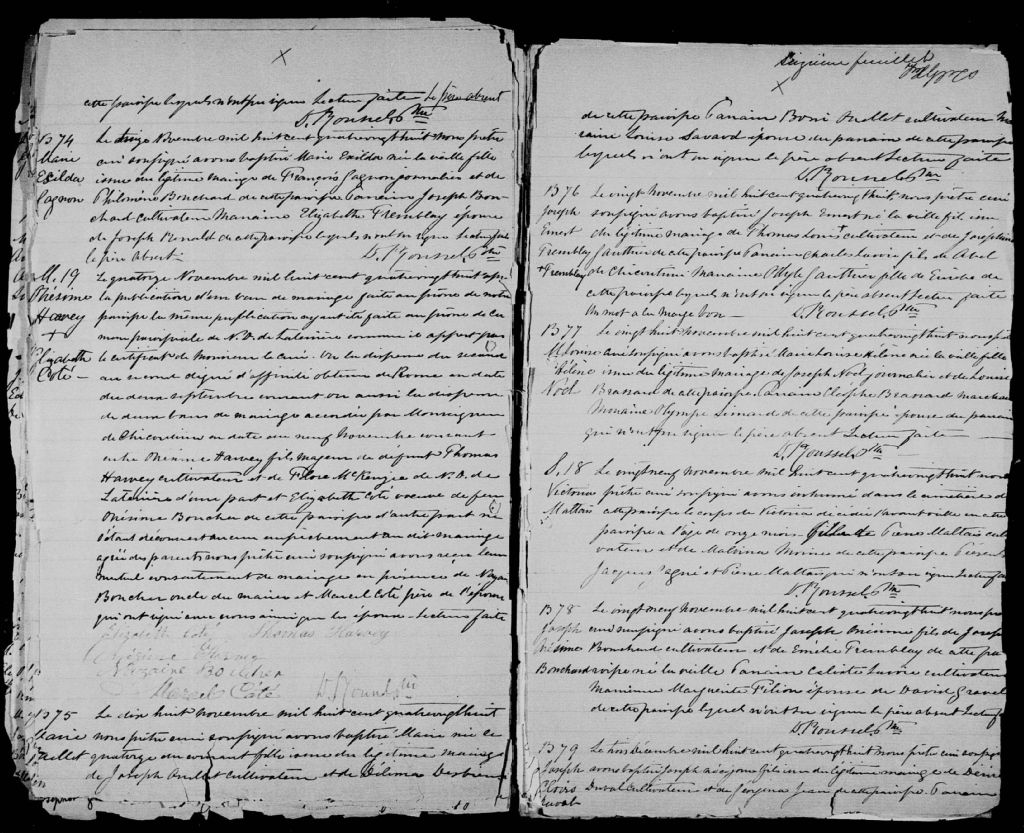 cette paroisse lesquels n'ont pu signer Lecture faite Le père absent
D. Roussel Ptre
B 74
Marie
Exilda
Gagnon
Le Novembre mil huit cent quatrevingt huit Nous prêtre
curé soussigné avons baptisé Marie Exilda née la vieille fille
issue du légitime mariage de François Gagnon journalier et de
Philomène Bouchard de cette paroisse Parrain Joseph Bou-
chard cultivateur Marraine Elizabeth Tremblay épouse
de Joseph de cette paroisse lesquels n'ont su signer Lecture faite
le père absent.
D. Roussel Ptre
M. 19
Onésime
Harvey
+
Elizabeth
Coté
Le quatorze Novembre mil huit cent quatrevingt huit après
la publication d'un ban de mariage faite au prône de notre
paroisse la même publication ayant été faite au prône de la
messe paroissiale de N. D. de Laterrière comme il appert par
le certificat de Monsieur le curé. Vu la dispense du second
au second degré d'affinité obtenue de Rome en date
du deux septembre courant vu aussi la dispense
de deux bans de mariage accordée par Monseigneur
de Chicoutimi en date du neuf Novembre courant
entre Onésime Harvey fils majeur de defunt Thomas
Harvey cultivateur et de Flore McKenzie de N. D. de
Laterrière d'une part et Elizabeth Coté veuve de feu
Onésime Boucher de cette paroisse d'autre part ne
s'étant découvert aucun empêchement au dit mariage
agréé des parents nous prêtre curé soussigné avons reçu leur
mutuel consentement de mariage en présence de
Boucher oncle du mariée et Marcel Coté père de l'épouse
qui ont signé avec nous ainsi que les époux. Lecture faite
Elizabeth Coté Thomas Harvey
Onésime Harvey
Boucher
Marcel Coté D. Roussel Ptre
B 75
Marie
Ouellet
Le dix huit novembre mil huit cent quatrevingt huit
nous prêtre curé soussigné avons baptisé Marie née ce
quatorze du courant fille issue du légitime mariage
de Joseph Ouellet Cultivateur et de Délima Desbiens
seizième feuillet
de cette paroisse Parrain Ouellet cultivateur Mar-
raine Louise Savard épouse du parrain de cette paroisse
lesquels n'ont su signer le père absent Lecture faite
D. Roussel Ptre
B 76
Joseph
Ernest
Tremblay
+ Tremblay
Le vingt Novembre mil huit cent quatrevingt huit, nous prêtre curé
soussigné avons baptisé Joseph Ernest né la vieille fils issu
du légitime mariage de Thomas Louis + cultivateur et de Joséphine
Gauthier de cette paroisse Parrain Charles Lavoie fils de Abel
de Chicoutimi Marraine Gauthier fille de
cette paroisse lesquels n'ont su signer le père absent Lecture faite
Un mot à la marge bon — D. Roussel Ptre
B 77
M. Louise
Hélène
Noël
Le vingt huit novembre mil huit cent quatrevingt huit nous prêtre
curé soussigné avons baptisé Marie Louise Hélène née la vieille fille
issue du légitime mariage de Joseph Noël journalier et de Louise
Brassard de cette paroisse. Parrain Cléophe Brassard marchand
Marraine Olympe Simard de cette paroisse épouse du parrain
qui n'ont pu signer le père absent Lecture faite —
D. Roussel Ptre
S. 18
Victoria
Maltais
Le vingt neuf novembre mil huit cent quatrevingt huit nous
prêtre curé soussigné avons inhumé dans le cimetière de
cette paroisse le corps de Victoria décédée l'avant veille en cette
paroisse à l'age de onze mois. Fille de Maltais cul-
tivateur et de Malvina de cette paroisse Présents
Jacques Gagné et Pierre Maltais qui n'ont su signer Lecture faite
D. Roussel Ptre
B 78
Joseph
Onésime
Bouchard
Le vingt neuf novembre mil huit cent quatrevingt huit nous prêtre
curé soussigné avons baptisé Joseph Onésime fils de Joseph
Bouchard cultivateur et de Emilie Tremblay de cette pa-
roisse né la vieille Parrain Lavoie cultivateur
Marraine Marguerite Filion épouse de David Gravel
de cette paroisse lesquels n'ont su signer le père absent Lecture f
D. Roussel Ptre
B 79
Joseph
Duval
Le trois décembre mil huit cent quatrevingt huit nous prêtre curé soussigné
avons baptisé Joseph né ce jour fils issu du légitime mariage de
Duval Cultivateur et de Georgina Jean de cette paroisse. Parrain